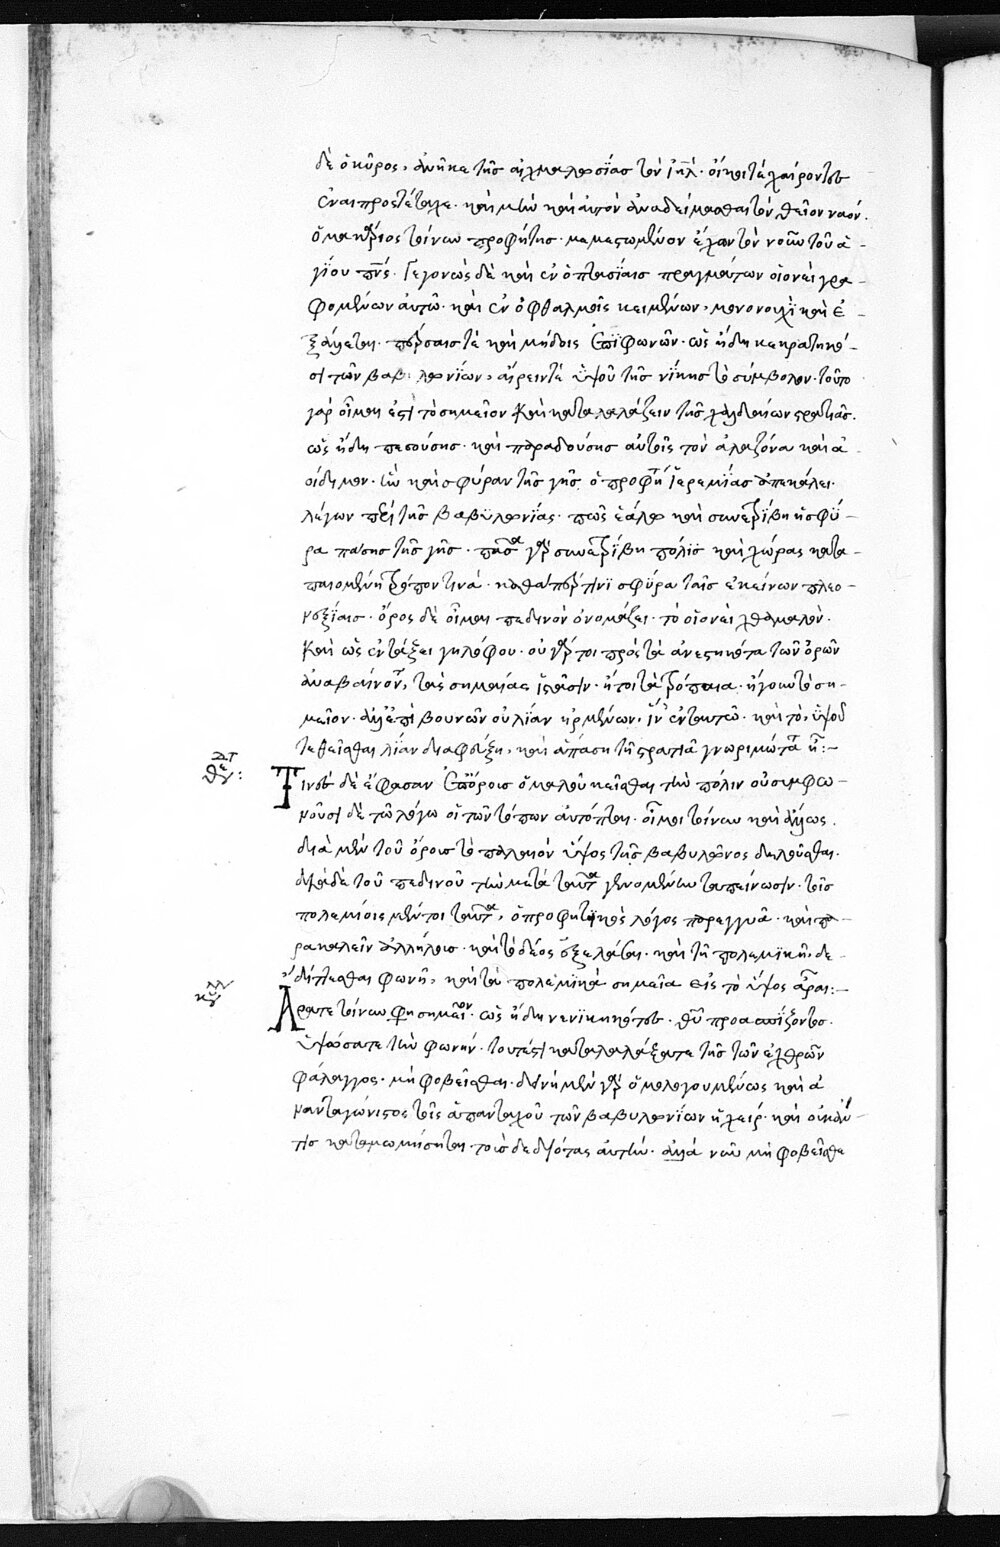 δὲ ὁ κῦρος, ἀνῆκε τῆς αἰχμαλωσΐας τὸν ἰηλ· οἴκοι τὲ χαίροντας
ἰέναι προστέταχε· καὶ μὴν καὶ αὐτὸν ἀναδείμασθαι τὸν θεῖον ναόν.
ὁ μακάριος τοίνυν προφήτης· μεμεστωμένον ἔχων τὸν νοῦν τοῦ ἁ
γΐου πνς· Γεγονὼς δὲ καὶ ἐν ὀπτασΐαις πραγμάτων οἱονεὶ γρα
φομένων αὐτῶ· καὶ ἐν ὀφθαλμοῖς κειμένων, μονονουχὶ καὶ ἐ
ξάλλεται· πέρσαις τὲ καὶ μήδοις ἐπιφωνῶν· ὡς ἤδη κεκρατηκό
σι τῶν βαβυλωνΐων, αἴρειν τὲ ὑψοῦ τῆς νΐκης τὸ σύμβολον· τοῦτο
γάρ οἶμαι ἐστὶ τὸ σημεῖον καὶ καταλαλάζειν τῆς χαλδαίων στρατιᾶς·
ὡς ἤδη πεσούσης· καὶ παραδούσης αὐτοῖς τὸν ἀλαζόνα καὶ ἀ
οίδιμον· ἣν καὶ σφύραν τῆς γῆς ὁ προφήτης ἱερεμΐας ἀπεκάλει·
λέγων περὶ τῆς βαβυλωνΐας· πῶς ἑάλω καὶ συνετρΐβη ἡ σφύ
ρα πάσης τῆς γῆς· πᾶσα γὰρ συνετρΐβη πόλϊς καὶ χώρας κατα
παιομένη τρόπον τινά· καθάπερ τινΐ σφύρα ταῖς ἐκείνων πλεο
νεξΐαις· ὄρος δὲ οἶμαι πεδινὸν ὀνομάζει· τὸ οἱονεὶ χθαμαλόν·
καὶ ὡς ἐν τάξει γηλόφου· οὐ γάρ τοι πρὸς τὰ ἀνεστηκότα τῶν ὀρῶν
ἀναβαίνοντες, τὰς σημαίας ἱστᾶσιν· ἤτοι τὰ τρόπαια· ἤγουν τὸ ση
μεῖον· ἀλλ' ἐπὶ βουνῶν οὐ λΐαν ἠρμένων, ἵν' ἐν ταυτῶ· καὶ τὸ, ὑψοῦ
τεθεῖσθαι λΐαν διαφεύξη, καὶ ἁπάση τῆ στρατιᾶ γνωριμώτατα ἦ:-
Τινὲς δὲ ἔφασαν ἐπ' ὄρους ὁμαλοῦ κεῖσθαι τὴν πόλιν οὐ συμφω
νοῦσι δὲ τῶ λόγω οἱ τῶν τόπων αὐτόπται· οἶμαι τοίνυν καὶ ἄλλως.
διὰ μὲν τοῦ ὄρους τὸ παλαιὸν ὕψος τῆς βαβυλῶνος δηλοῦσθαι·
διὰ δὲ τοῦ πεδινοῦ τὴν μετὰ ταῦτα γενομένην ταπείνωσιν· τοῖς
πολεμίοις μέντοι ταῦτα, ὁ προφητικὸς λόγος παρεγγυᾶ· καὶ πα
ρακαλεῖν ἀλλήλους· καὶ τὸ δέος ἐξελάσαι· καὶ τῆ πολεμϊκῆ, δε
δΐττεσθαι φωνῆ, καὶ τὰ πολεμϊκὰ σημεῖα εἰς τὸ ὕψος ἆραι:-
Ἄρατε τοίνυν φησὶ σημεῖον· ὡς ἤδη νενϊκηκότες· θεοῦ προασπίζοντος.
ὑψώσατε τὴν φωνήν· τουτέστι καταλαλάξατε τῆς τῶν ἐχθρῶν
φάλαγγος· μὴ φοβεῖσθαι· δεινὴ μὲν γὰρ ὁμολογουμένως καὶ ἀ
νανταγώνιστος τοῖς ἁπανταχοῦ τῶν βαβυλωνΐων ἡ χείρ· καὶ οὐκ ἄν
τις καταμωμήσηται τοὺς δεδιότας αὐτήν· ἀλλὰ νῦν μὴ φοβεῖσθε